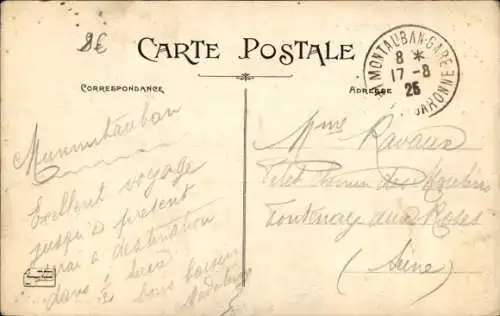 8€
CARTE POSTALE
CORRESPONDANCE
ADRESSE
MONTAUBAN-GARE
8 *
17-8
25
GARONNE
Excellent voyage
jusqu'à présent
à destination
dans
bons baisers
Mme Ravaux
Petit Chemin des
Fontenay aux Roses
(Seine)